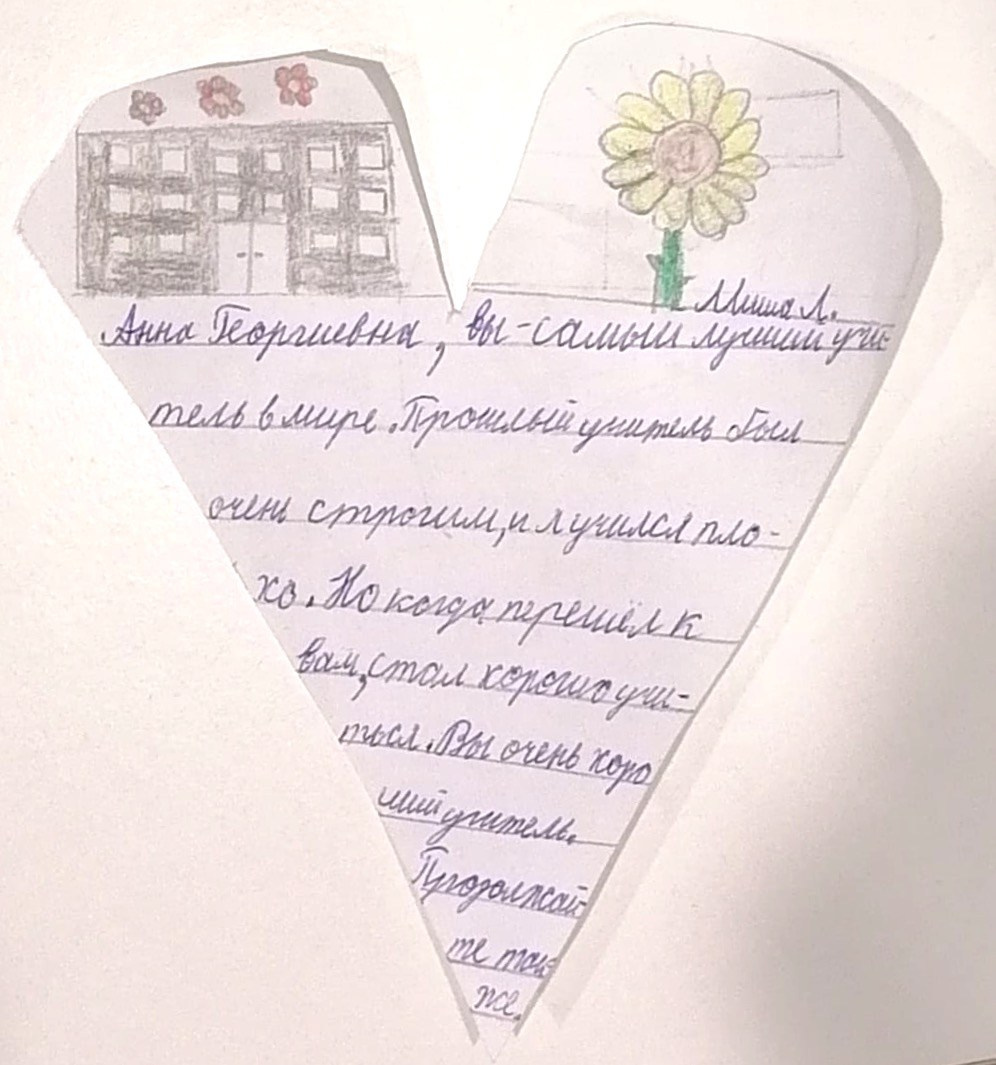 Миша Л.
Анна Георгиевна, вы - самый лучший учи-
тель в мире. Прошлый учитель был
очень строгим, и я учился пло-
хо. Но когда перешёл к
вам, стал хорошо учи-
ться. Вы очень хоро
ший учитель.
Продолжай-
те так
же.